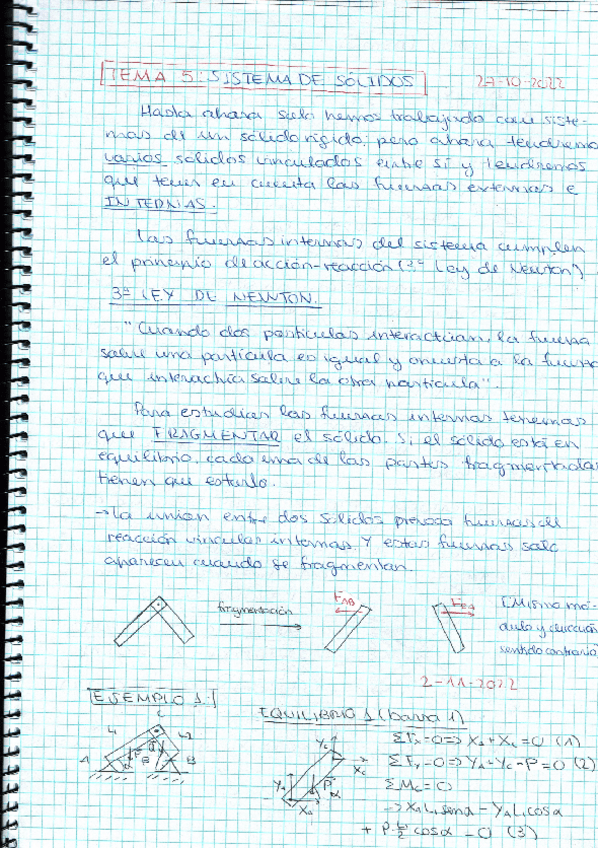 TEMA 5: SISTEMA DE SÓLIDOS 27-10-2022
Hasta ahora solo hemos trabajado con siste-
mas de un sólido rígido, pero ahora tendremos
varios solidos vinculados entre sí y tendremos
que tener en cuenta las fuerzas externas e
INTERNAS.
Las fuerzas internas del sistema cumplen
el principio de acción-reacción (3ª Ley de Newton)
3ª LEY DE NEWTON.
"Cuando dos partículas interactúan, la fuerza
sobre una partícula es igual y opuesta a la fuerza
que interactúa sobre la otra partícula".
Para estudiar las fuerzas internas tenemos
que FRAGMENTAR el sólido. Si el sólido está en
equilibrio, cada una de las partes fragmentadas
tienen que estarlo.
→ La unión entre dos sólidos provoca fuerzas de
reacción vincular internas. Y estas fuerzas solo
aparecen cuando se fragmentan.
fragmentación
F_AB
F_BA
[Mismo mó-
dulo y dirección
sentido contrario
2-11-2022
EJEMPLO 1.
EQUILIBRIO 1 (barra 1)
C
L1
L2
A
B
P
α
Yc
Xc
YA
XA
P
α
ΣFx=0 => XA+Xc=0 (1)
ΣFy=0 => YA-Yc-P=0 (2)
ΣMc=0
→ XA L1 senα - YA L1 cosα
+ P·L1/2 cosα = 0 (3)